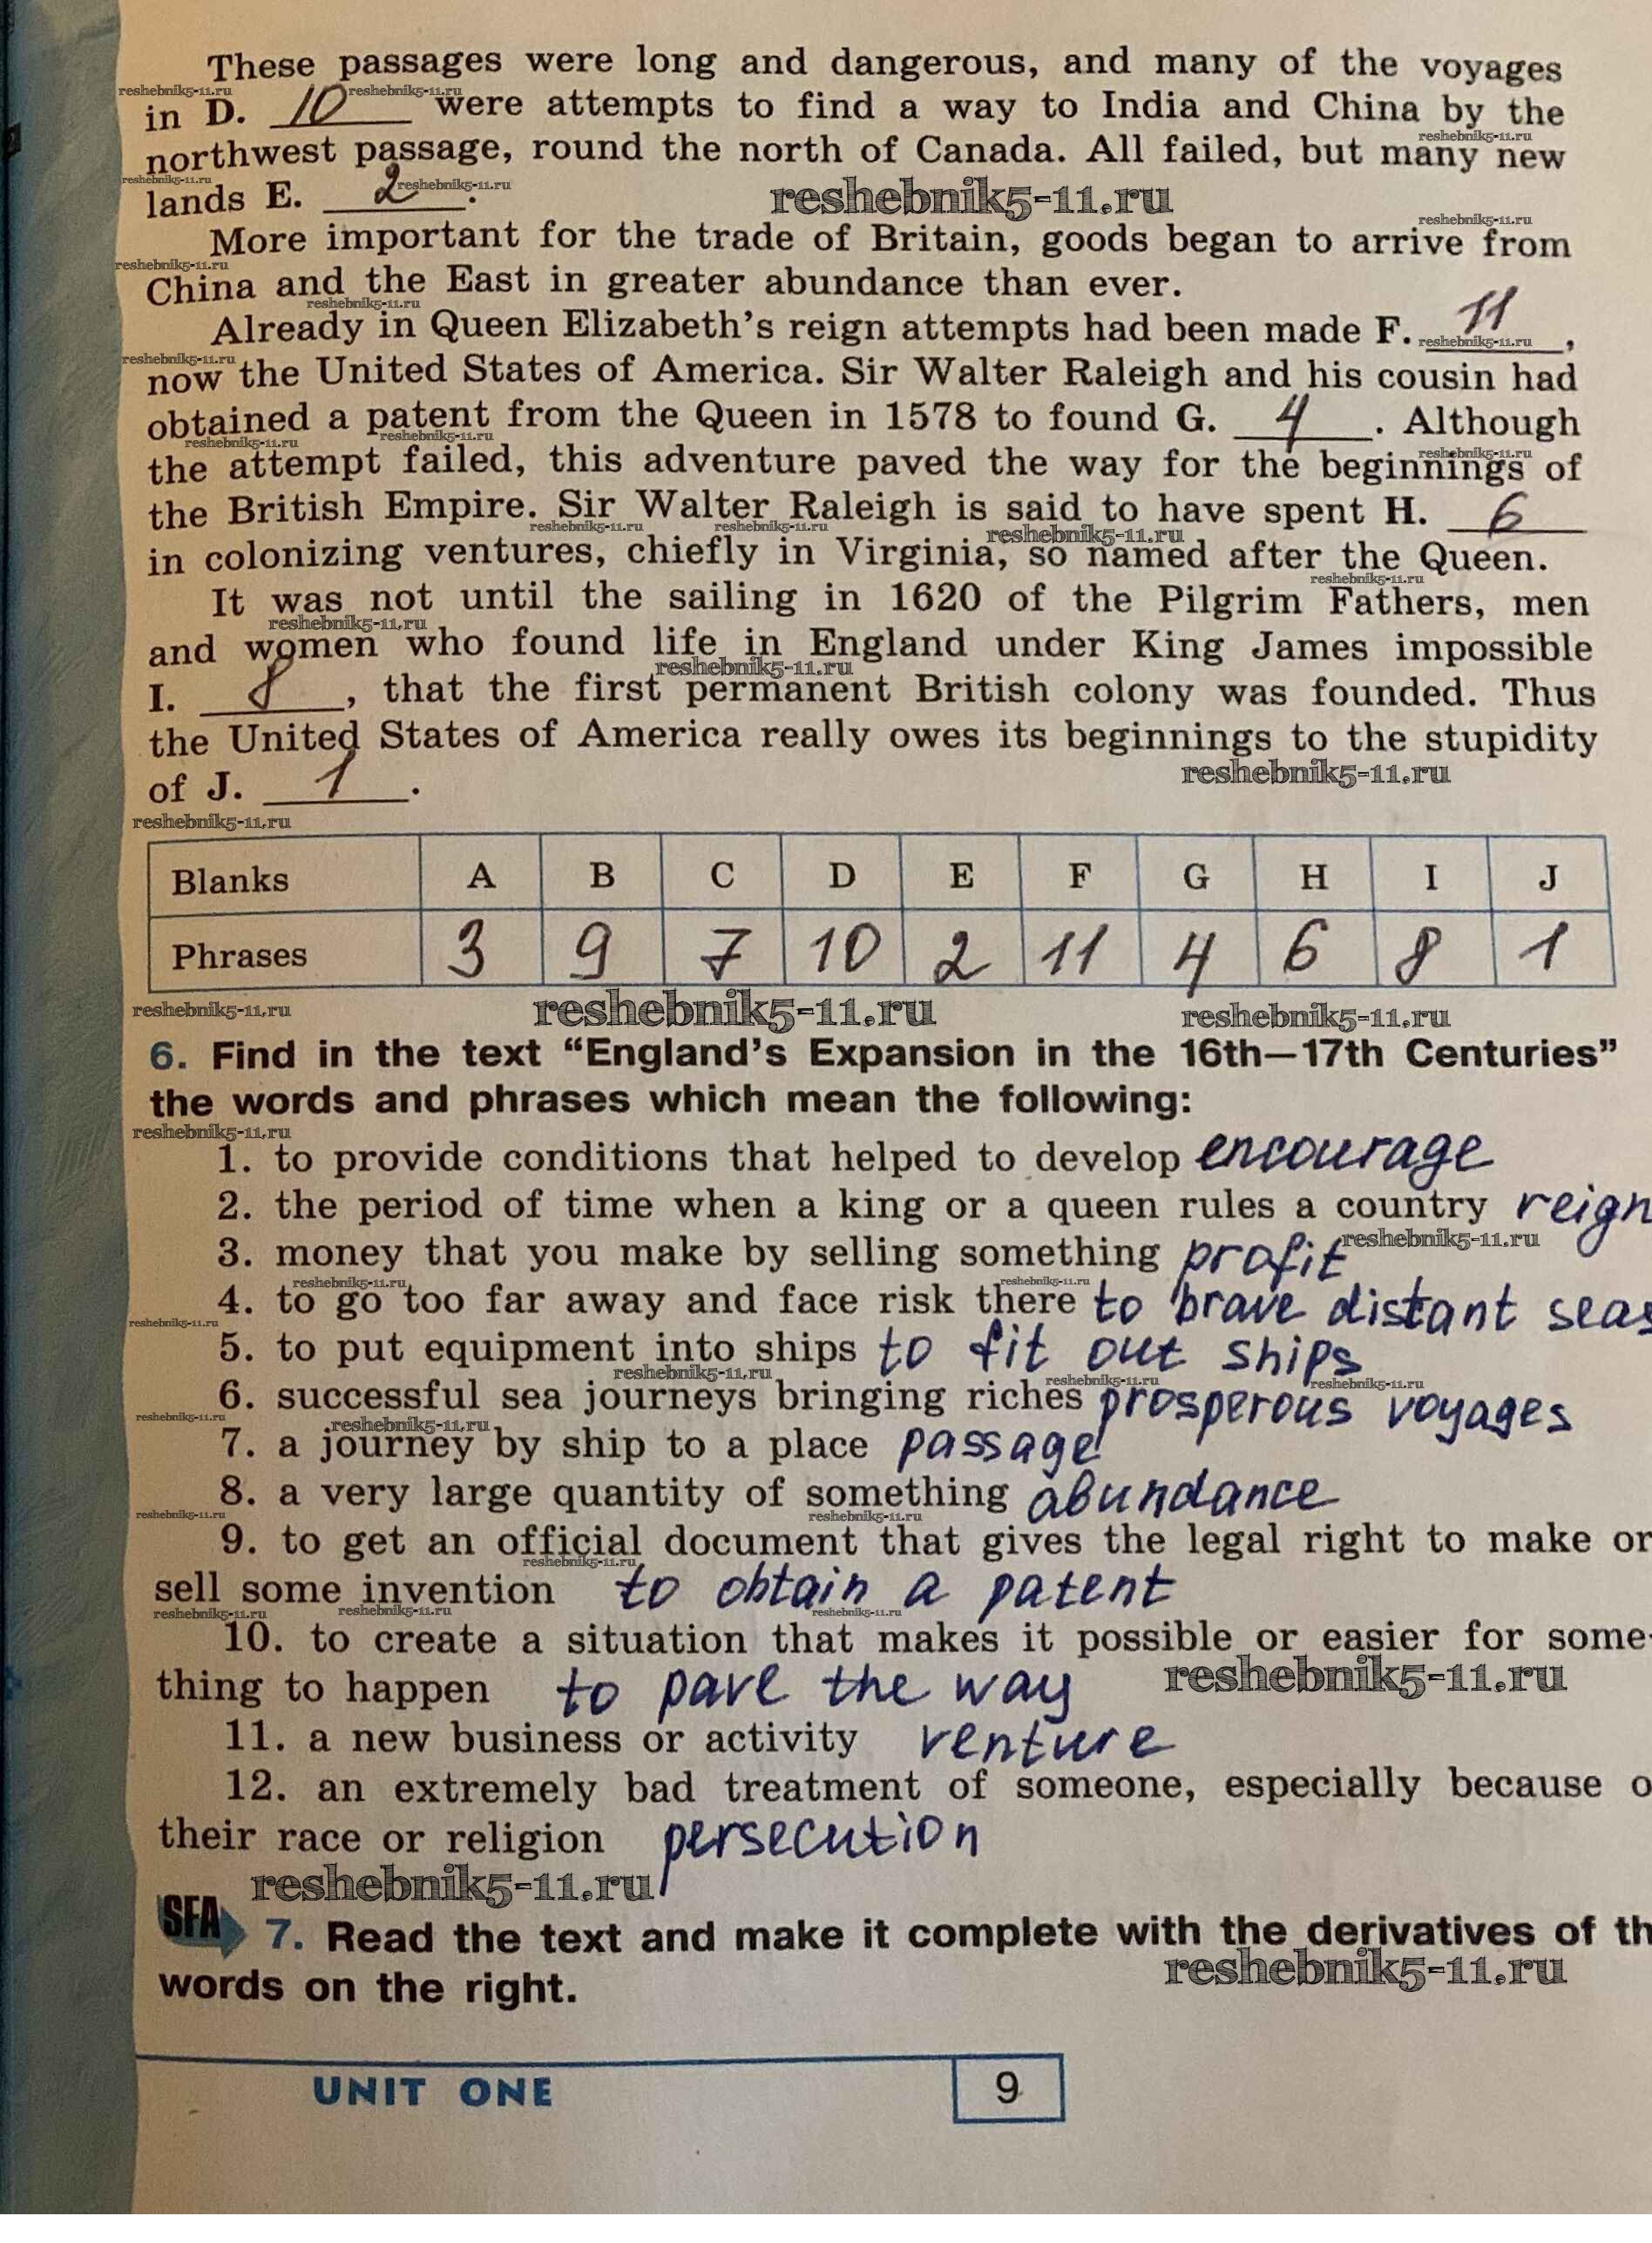 These passages were long and dangerous, and many of the voyages
in D. 10 were attempts to find a way to India and China by the
northwest passage, round the north of Canada. All failed, but many new
lands E. 2.
More important for the trade of Britain, goods began to arrive from
China and the East in greater abundance than ever.
Already in Queen Elizabeth's reign attempts had been made F. 11,
now the United States of America. Sir Walter Raleigh and his cousin had
obtained a patent from the Queen in 1578 to found G. 4. Although
the attempt failed, this adventure paved the way for the beginnings of
the British Empire. Sir Walter Raleigh is said to have spent H. 6
in colonizing ventures, chiefly in Virginia, so named after the Queen.
It was not until the sailing in 1620 of the Pilgrim Fathers, men
and women who found life in England under King James impossible
I. 8, that the first permanent British colony was founded. Thus
the United States of America really owes its beginnings to the stupidity
of J. 1.
Blanks A B C D E F G H I J
Phrases 3 9 7 10 2 11 4 6 8 1
reshebnik5-11.ru
6. Find in the text "England's Expansion in the 16th—17th Centuries"
the words and phrases which mean the following:
1. to provide conditions that helped to develop encourage
2. the period of time when a king or a queen rules a country reign
3. money that you make by selling something profit
4. to go too far away and face risk there to brave distant seas
5. to put equipment into ships to fit out ships
6. successful sea journeys bringing riches prosperous voyages
7. a journey by ship to a place passage
8. a very large quantity of something abundance
9. to get an official document that gives the legal right to make or
sell some invention to obtain a patent
10. to create a situation that makes it possible or easier for some-
thing to happen to pave the way
11. a new business or activity venture
12. an extremely bad treatment of someone, especially because o
their race or religion persecution
reshebnik5-11.ru
SFA 7. Read the text and make it complete with the derivatives of th
words on the right.
reshebnik5-11.ru
UNIT ONE 9